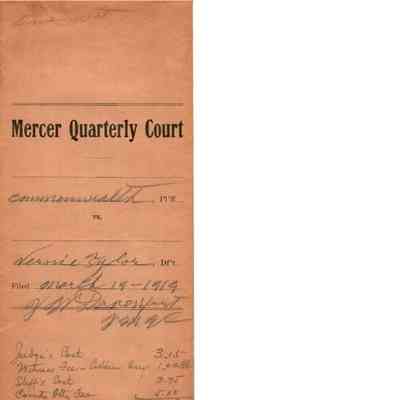 Mercer Quarterly Court
Commonwealth, Pl'ff.
vs.
Vernie Tylor, Df't.
Filed March 19-1919
J W Davenport
Judge's Cost 3.15
Witness Fee-
Shff's Cost
County Atty Fee 5.00